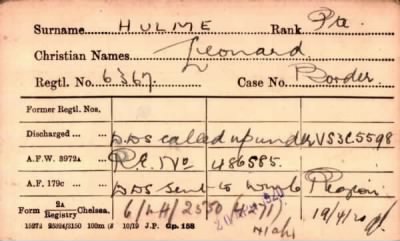 Surname HULME Rank Pte
Christian Names Leonard
Regtl. No. 6367. Case No. Border.
Former Regtl. Nos.
Discharged ... DDS called up under VS3C5598
A.F.W. 3972A P.C. No 486585.
A.F. 179c DDS sent to Region
Form 2A Registry Chelsea. 6/LH/2550 (4271) 19/4/20
15274 25924/3150 100m (3) 10/19 J.P. Gp. 158